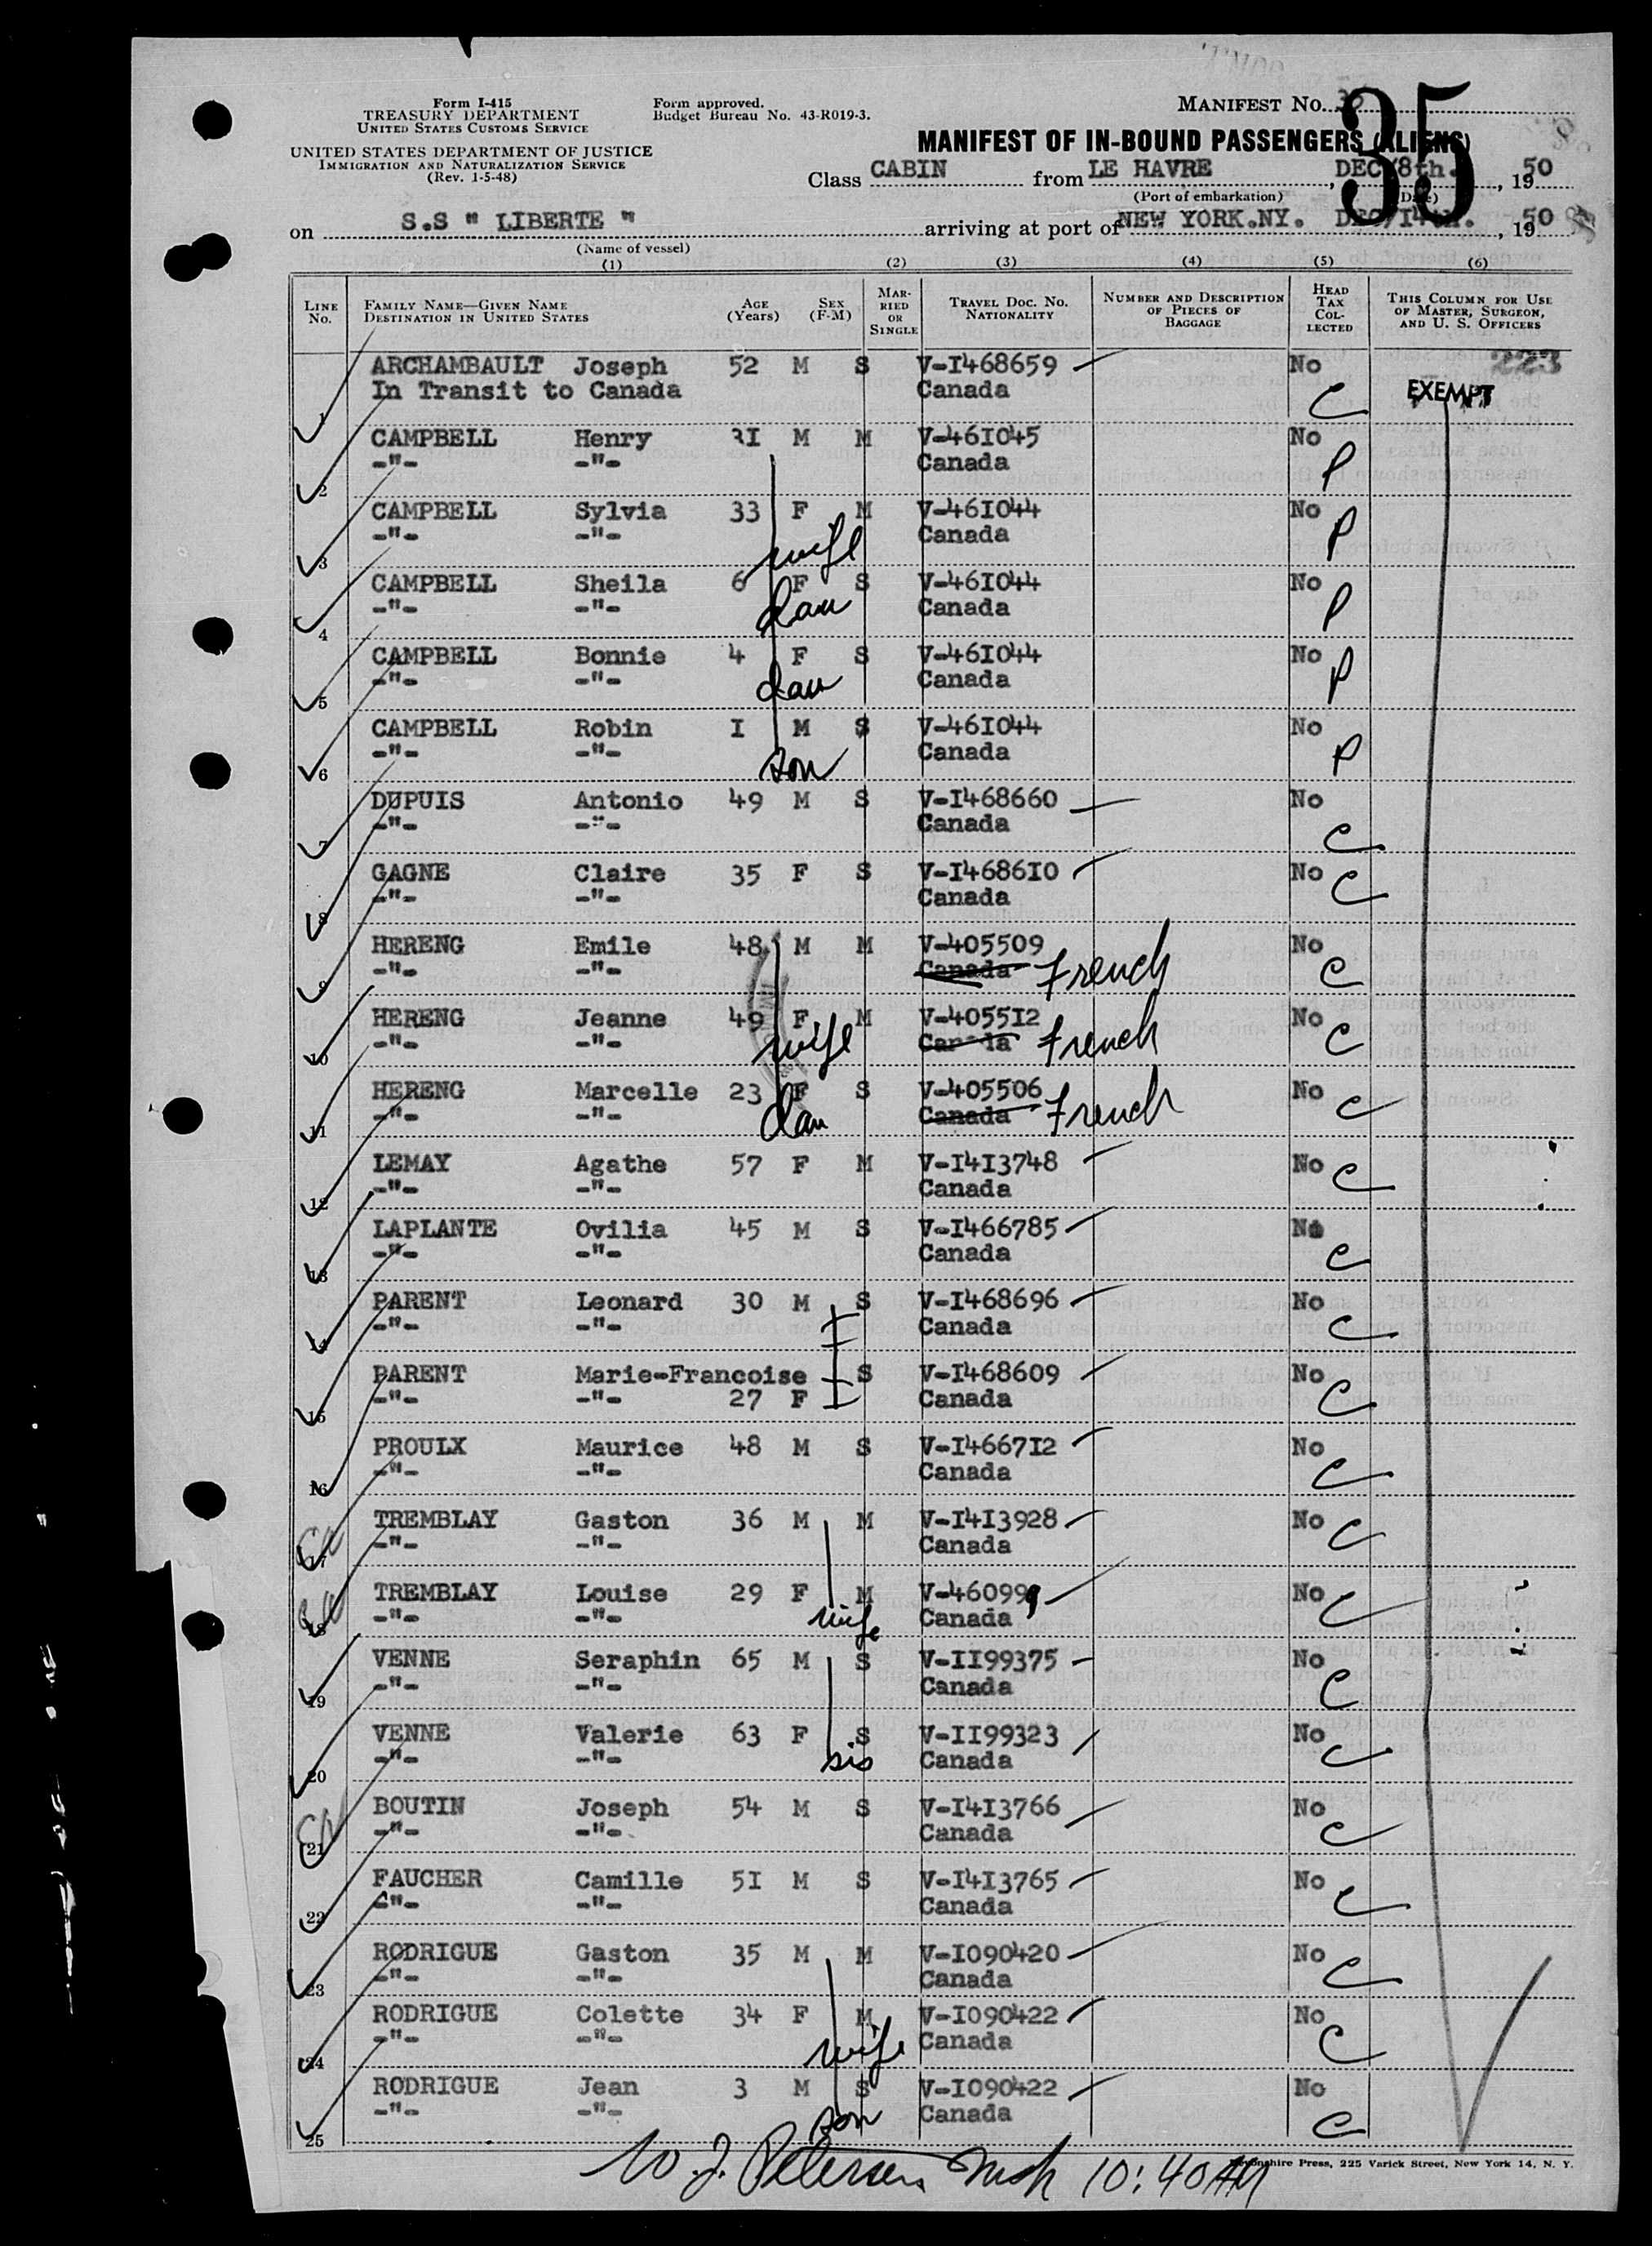 Form I-415
TREASURY DEPARTMENT
UNITED STATES CUSTOMS SERVICE
UNITED STATES DEPARTMENT OF JUSTICE
IMMIGRATION AND NATURALIZATION SERVICE
(Rev. 1-5-48)
Form approved.
Budget Bureau No. 43-R019-3.
MANIFEST No.
35
MANIFEST OF IN-BOUND PASSENGERS (ALIENS)
Class CABIN from LE HAVRE, DEC/8th., 1950
(Port of embarkation) (Date)
on S.S " LIBERTE " arriving at port of NEW YORK.NY. DEC/I4th., 1950
(Name of vessel)
(1) (2) (3) (4) (5) (6)
LINE No. FAMILY NAME—GIVEN NAME DESTINATION IN UNITED STATES AGE (Years) SEX (F-M) MARRIED OR SINGLE TRAVEL DOC. NO. NATIONALITY NUMBER AND DESCRIPTION OF PIECES OF BAGGAGE HEAD TAX COLLECTED THIS COLUMN FOR USE OF MASTER, SURGEON, AND U. S. OFFICERS
ARCHAMBAULT Joseph 52 M S V-I468659 No 223
1 In Transit to Canada Canada C EXEMPT
CAMPBELL Henry 3I M M V-46I045 No
2 -"- -"- Canada P
CAMPBELL Sylvia 33 F M V-46I044 No
3 -"- -"- wife Canada P
CAMPBELL Sheila 6 F S V-46I044 No
4 -"- -"- dau Canada P
CAMPBELL Bonnie 4 F S V-46I044 No
5 -"- -"- dau Canada P
CAMPBELL Robin I M S V-46I044 No
6 -"- -"- son Canada P
DUPUIS Antonio 49 M S V-I468660 No
7 -"- -"- Canada C
GAGNE Claire 35 F S V-I4686I0 No
8 -"- -"- Canada C
HERENG Emile 48 M M V-405509 No
9 -"- -"- Canada French C
HERENG Jeanne 49 F M V-4055I2 No
10 -"- -"- wife Canada French C
HERENG Marcelle 23 F S V-405506 No
11 -"- -"- dau Canada French C
LEMAY Agathe 57 F M V-I4I3748 No
12 -"- -"- Canada C
LAPLANTE Ovilia 45 M S V-I466785 No
13 -"- -"- Canada C
PARENT Leonard 30 M S V-I468696 No
14 -"- -"- Canada C
PARENT Marie-Francoise S V-I468609 No
15 -"- -"- 27 F Canada C
PROULX Maurice 48 M S V-I4667I2 No
16 -"- -"- Canada C
TREMBLAY Gaston 36 M M V-I4I3928 No
17 -"- -"- Canada C
TREMBLAY Louise 29 F M V-460999 No
18 -"- -"- wife Canada C
VENNE Seraphin 65 M S V-II99375 No
19 -"- -"- Canada C
VENNE Valerie 63 F S V-II99323 No
20 -"- -"- sis Canada C
BOUTIN Joseph 54 M S V-I4I3766 No
21 -"- -"- Canada C
FAUCHER Camille 5I M S V-I4I3765 No
22 -"- -"- Canada C
RODRIGUE Gaston 35 M M V-I090420 No
23 -"- -"- Canada C
RODRIGUE Colette 34 F M V-I090422 No
24 -"- -"- wife Canada C
RODRIGUE Jean 3 M S V-I090422 No
25 -"- -"- son Canada C
W. J. Petersen 10:40 AM
Devonshire Press, 225 Varick Street, New York 14, N. Y.